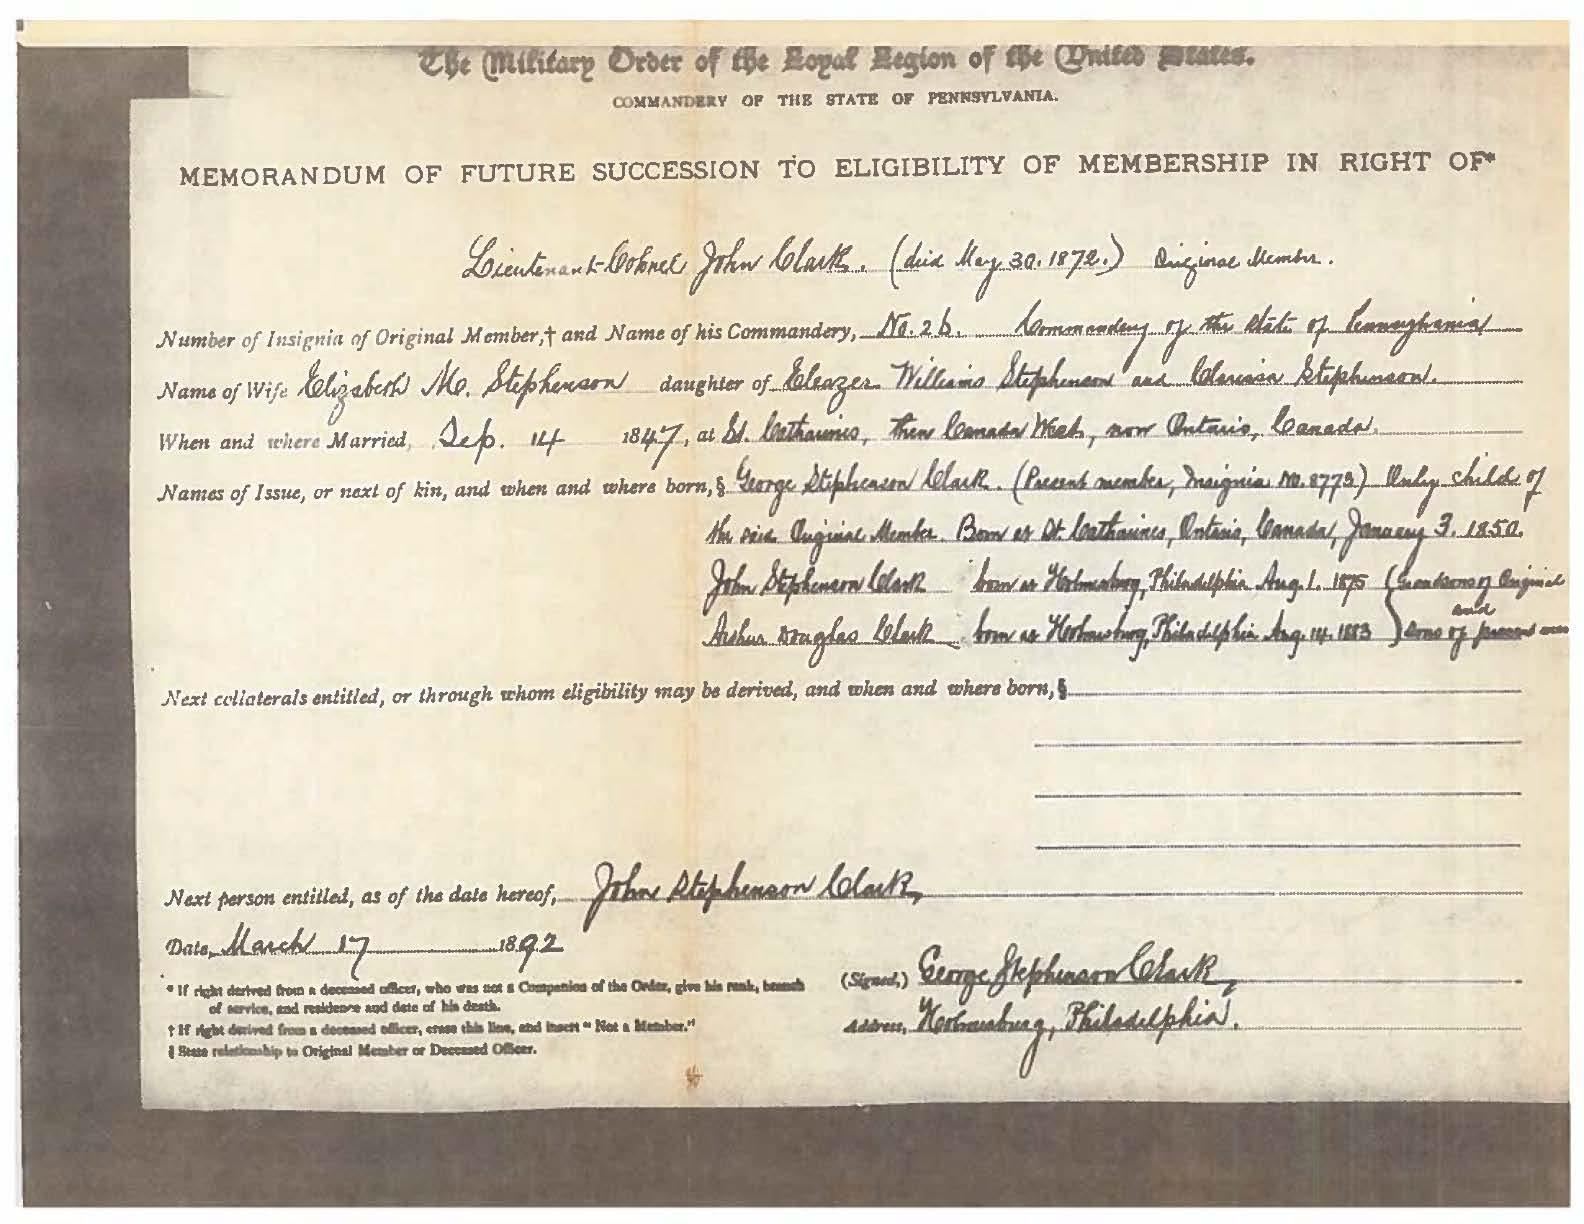 The Military Order of the Loyal Legion of the United States.
COMMANDERY OF THE STATE OF PENNSYLVANIA.
MEMORANDUM OF FUTURE SUCCESSION TO ELIGIBILITY OF MEMBERSHIP IN RIGHT OF*
Lieutenant-Colonel John Clark. (died May 30. 1872.) Original Member.
Number of Insignia of Original Member,† and Name of his Commandery, No. 26. Commandery of the State of Pennsylvania
Name of Wife Elizabeth Mc. Stephenson daughter of Eleazer Williams Stephenson and Clarissa Stephenson.
When and where Married, Sep. 14 1847, at St. Catharines, then Canada West, now Ontario, Canada.
Names of Issue, or next of kin, and when and where born,§ George Stephenson Clark. (Present member, Insignia No. 8773) Only child of
the said Original Member. Born at St. Catharines, Ontario, Canada, January 3. 1850.
John Stephenson Clark born at Holmesburg, Philadelphia Aug. 1. 1875 (Grandsons of Original
and
Arthur Douglas Clark born at Holmesburg, Philadelphia Aug. 14. 1883 ) Sons of present
Next collaterals entitled, or through whom eligibility may be derived, and when and where born,§
Next person entitled, as of the date hereof, John Stephenson Clark,
Date, March 17 1892
* If right derived from a deceased officer, who was not a Companion of the Order, give his rank, branch
of service, and residence and date of his death.
† If right derived from a deceased officer, erase this line, and insert "Not a Member."
§ State relationship to Original Member or Deceased Officer.
(Signed,) George Stephenson Clark,
Address, Holmesburg, Philadelphia.